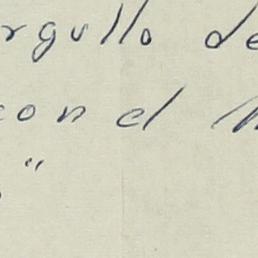 rgullo de
con el
"